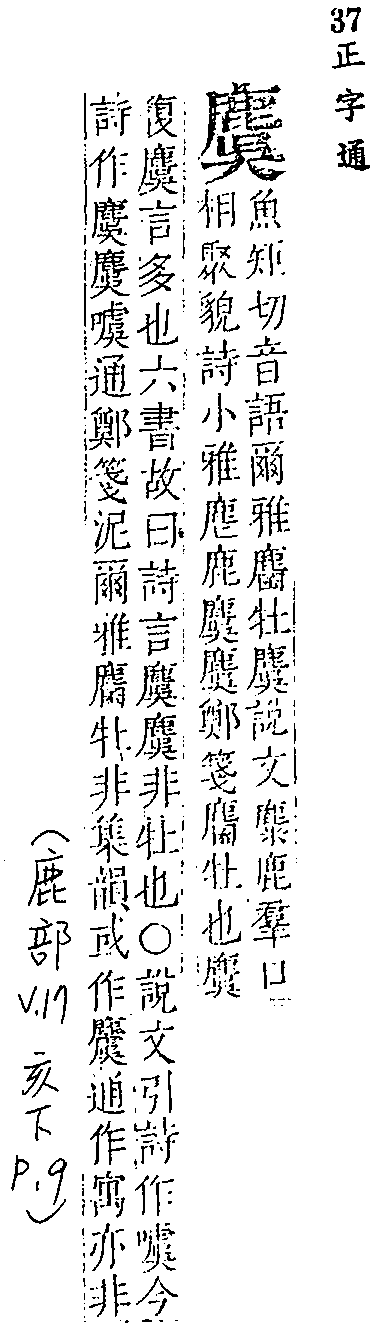 37正字通
麌
魚矩切音語爾雅麕牡麌說文麋鹿羣口
相聚貌詩小雅麀鹿麌麌鄭箋麕牡也麌
復麌言多也六書故曰詩言麌麌非牡也○說文引詩作噳今
詩作麌麌噳通鄭箋泥爾雅麕牡非集韻或作麌通作寓亦非
(鹿部 V.17 亥下 P.9)